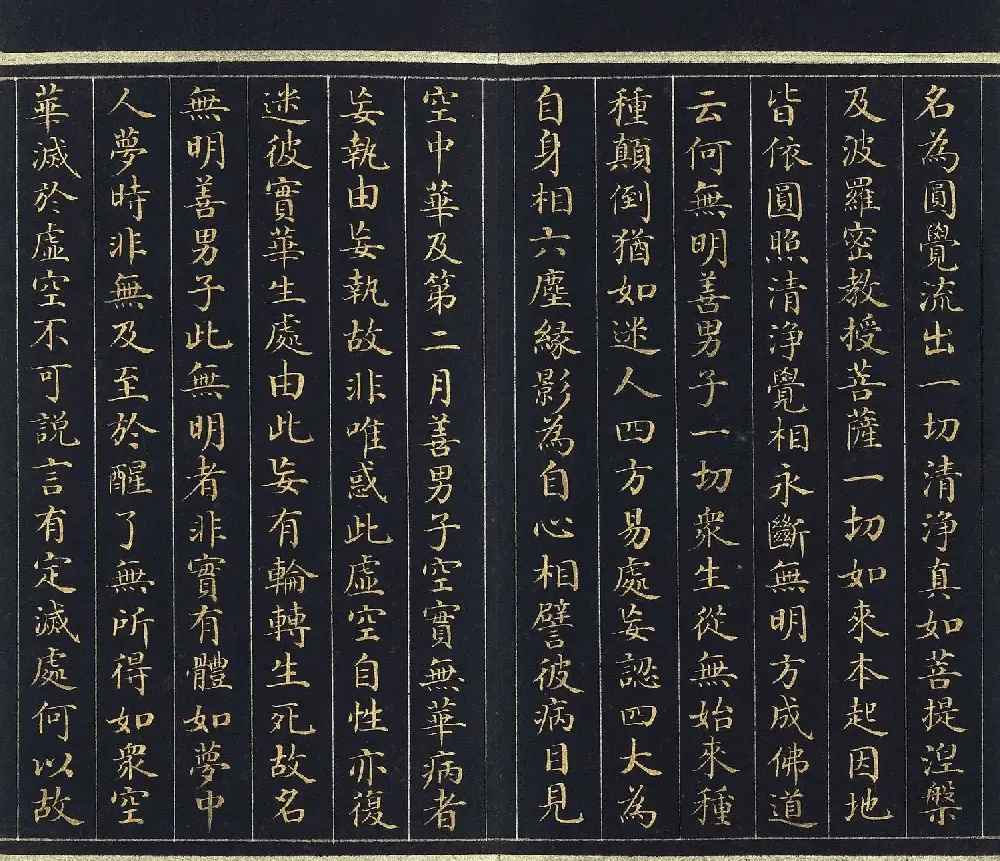 名為圓覺流出一切清淨真如菩提涅槃
及波羅密教授菩薩一切如來本起因地
皆依圓照清淨覺相永斷無明方成佛道
云何無明善男子一切眾生從無始來種
種顛倒猶如迷人四方易處妄認四大為
自身相六塵緣影為自心相譬彼病目見
空中華及第二月善男子空實無華病者
妄執由妄執故非唯惑此虛空自性亦復
迷彼實華生處由此妄有輪轉生死故名
無明善男子此無明者非實有體如夢中
人夢時非無及至於醒了無所得如眾空
華滅於虛空不可說言有定滅處何以故